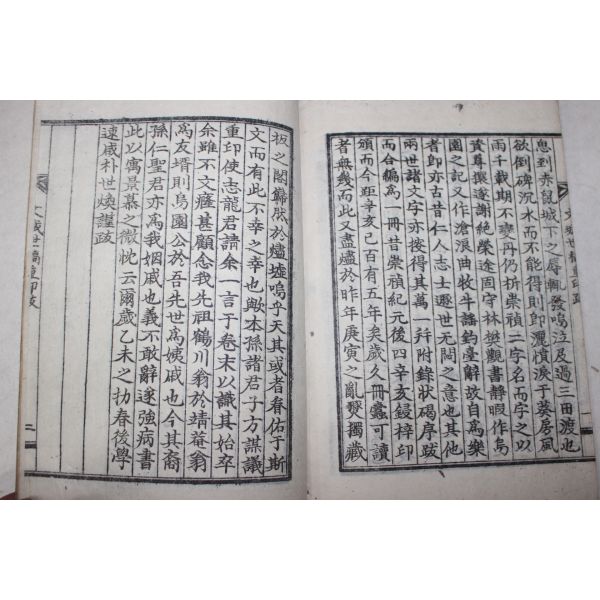 息到赤鼠城下之辱輒發嗚泣及過三田渡也
欲倒碑沉水而不能得則即灑憤淚于葵房風
雨千載期不變丹仍拆崇禎二字名而字之以
貴尊攘遂謝絶榮途固守林樊觀書靜暇作烏
園之記又作滄浪曲牧牛謠釣臺解故自爲樂
者即亦古昔仁人志士遯世无悶之意也其他
兩世諸文字亦搜得其萬一幷附錄狀碣序跋
而合編爲一冊昔崇禎紀元後四辛亥鋟梓印
頒而今距辛亥已百有五年矣歲久冊蠹可讀
者無幾而此又盡燼於昨年庚寅之亂燹獨藏
板之閣巋然於燼墟嗚乎天其或者眷佑于斯
文而有此不幸之幸也歟本孫諸君子方謀議
重印使志龍君請余一言于卷末以識其始卒
余雖不文癃甚顧念我先祖鶴川翁於靖菴翁
爲友壻則烏園公於吾先世爲姨戚也今其裔
孫仁聖君亦爲我姻戚也義不敢辭遂強病書
此以寓景慕之微忱云爾歲乙未之初春後學
速戚朴世煥謹跋
世稿重印跋
二